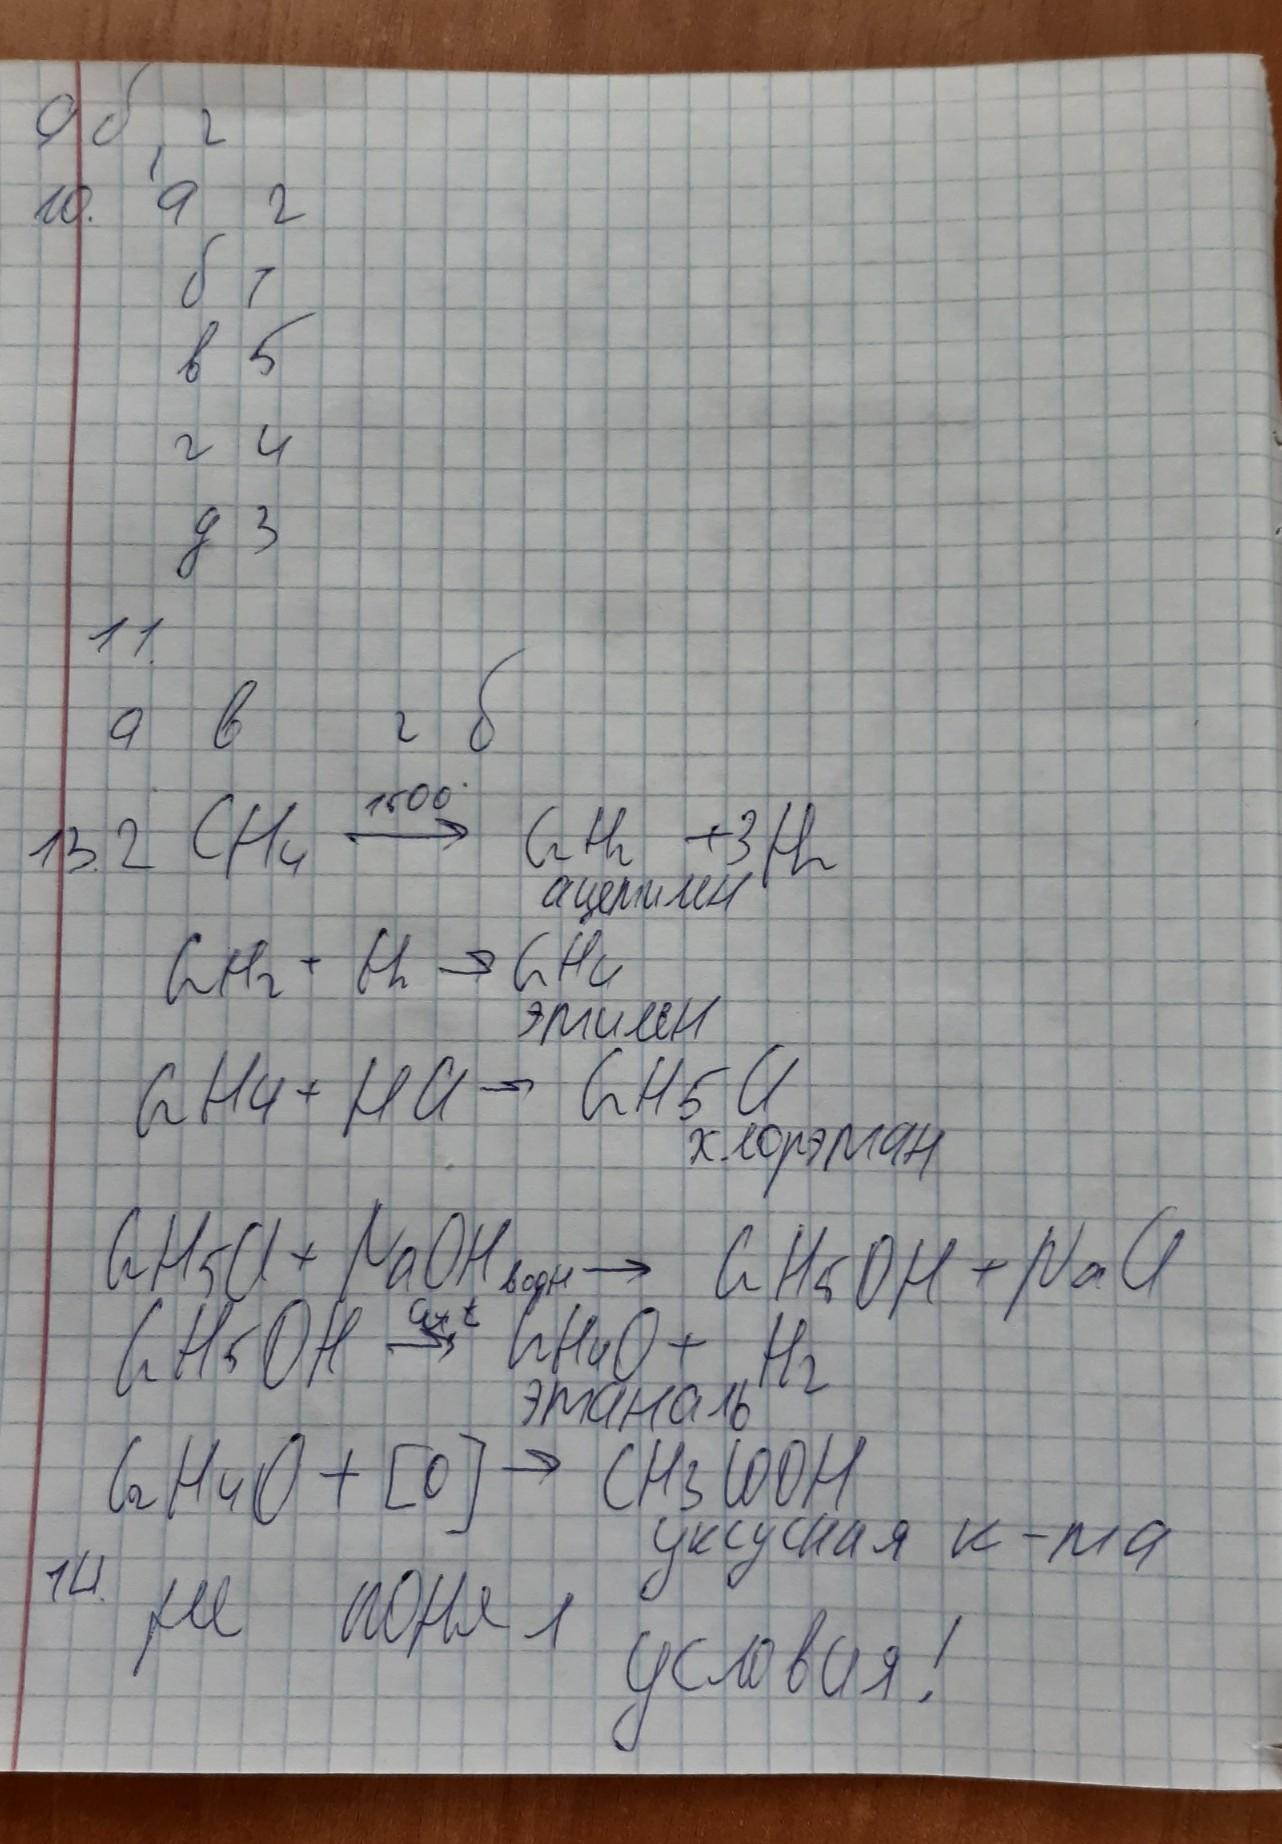 9 б, г
10. а 2
б 1
в 5
г 4
д 3
11.
а в г б
13. 2 CH4 1500° → C2H2 + 3H2
ацетилен
C2H2 + H2 → C2H4
этилен
C2H4 + HCl → C2H5Cl
хлорэтан
C2H5Cl + NaOH водн → C2H5OH + NaCl
C2H5OH Cu, t → C2H4O + H2
этаналь
C2H4O + [O] → CH3COOH
уксусная к-та
14. не понял условия!